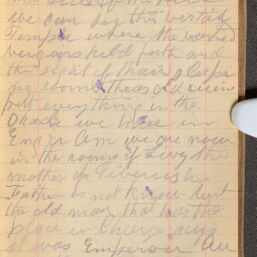 we can see this vestid
Temple where the vestid
vergans held forth and
the sight of their sleep
ing rooms these old ruins
put everything in the
Oracle we have in
we are now
in the rooms of Livy the
mother of Tiberius his
Father is not known but
the old man that has the
place in charge says
it was Emperour Au